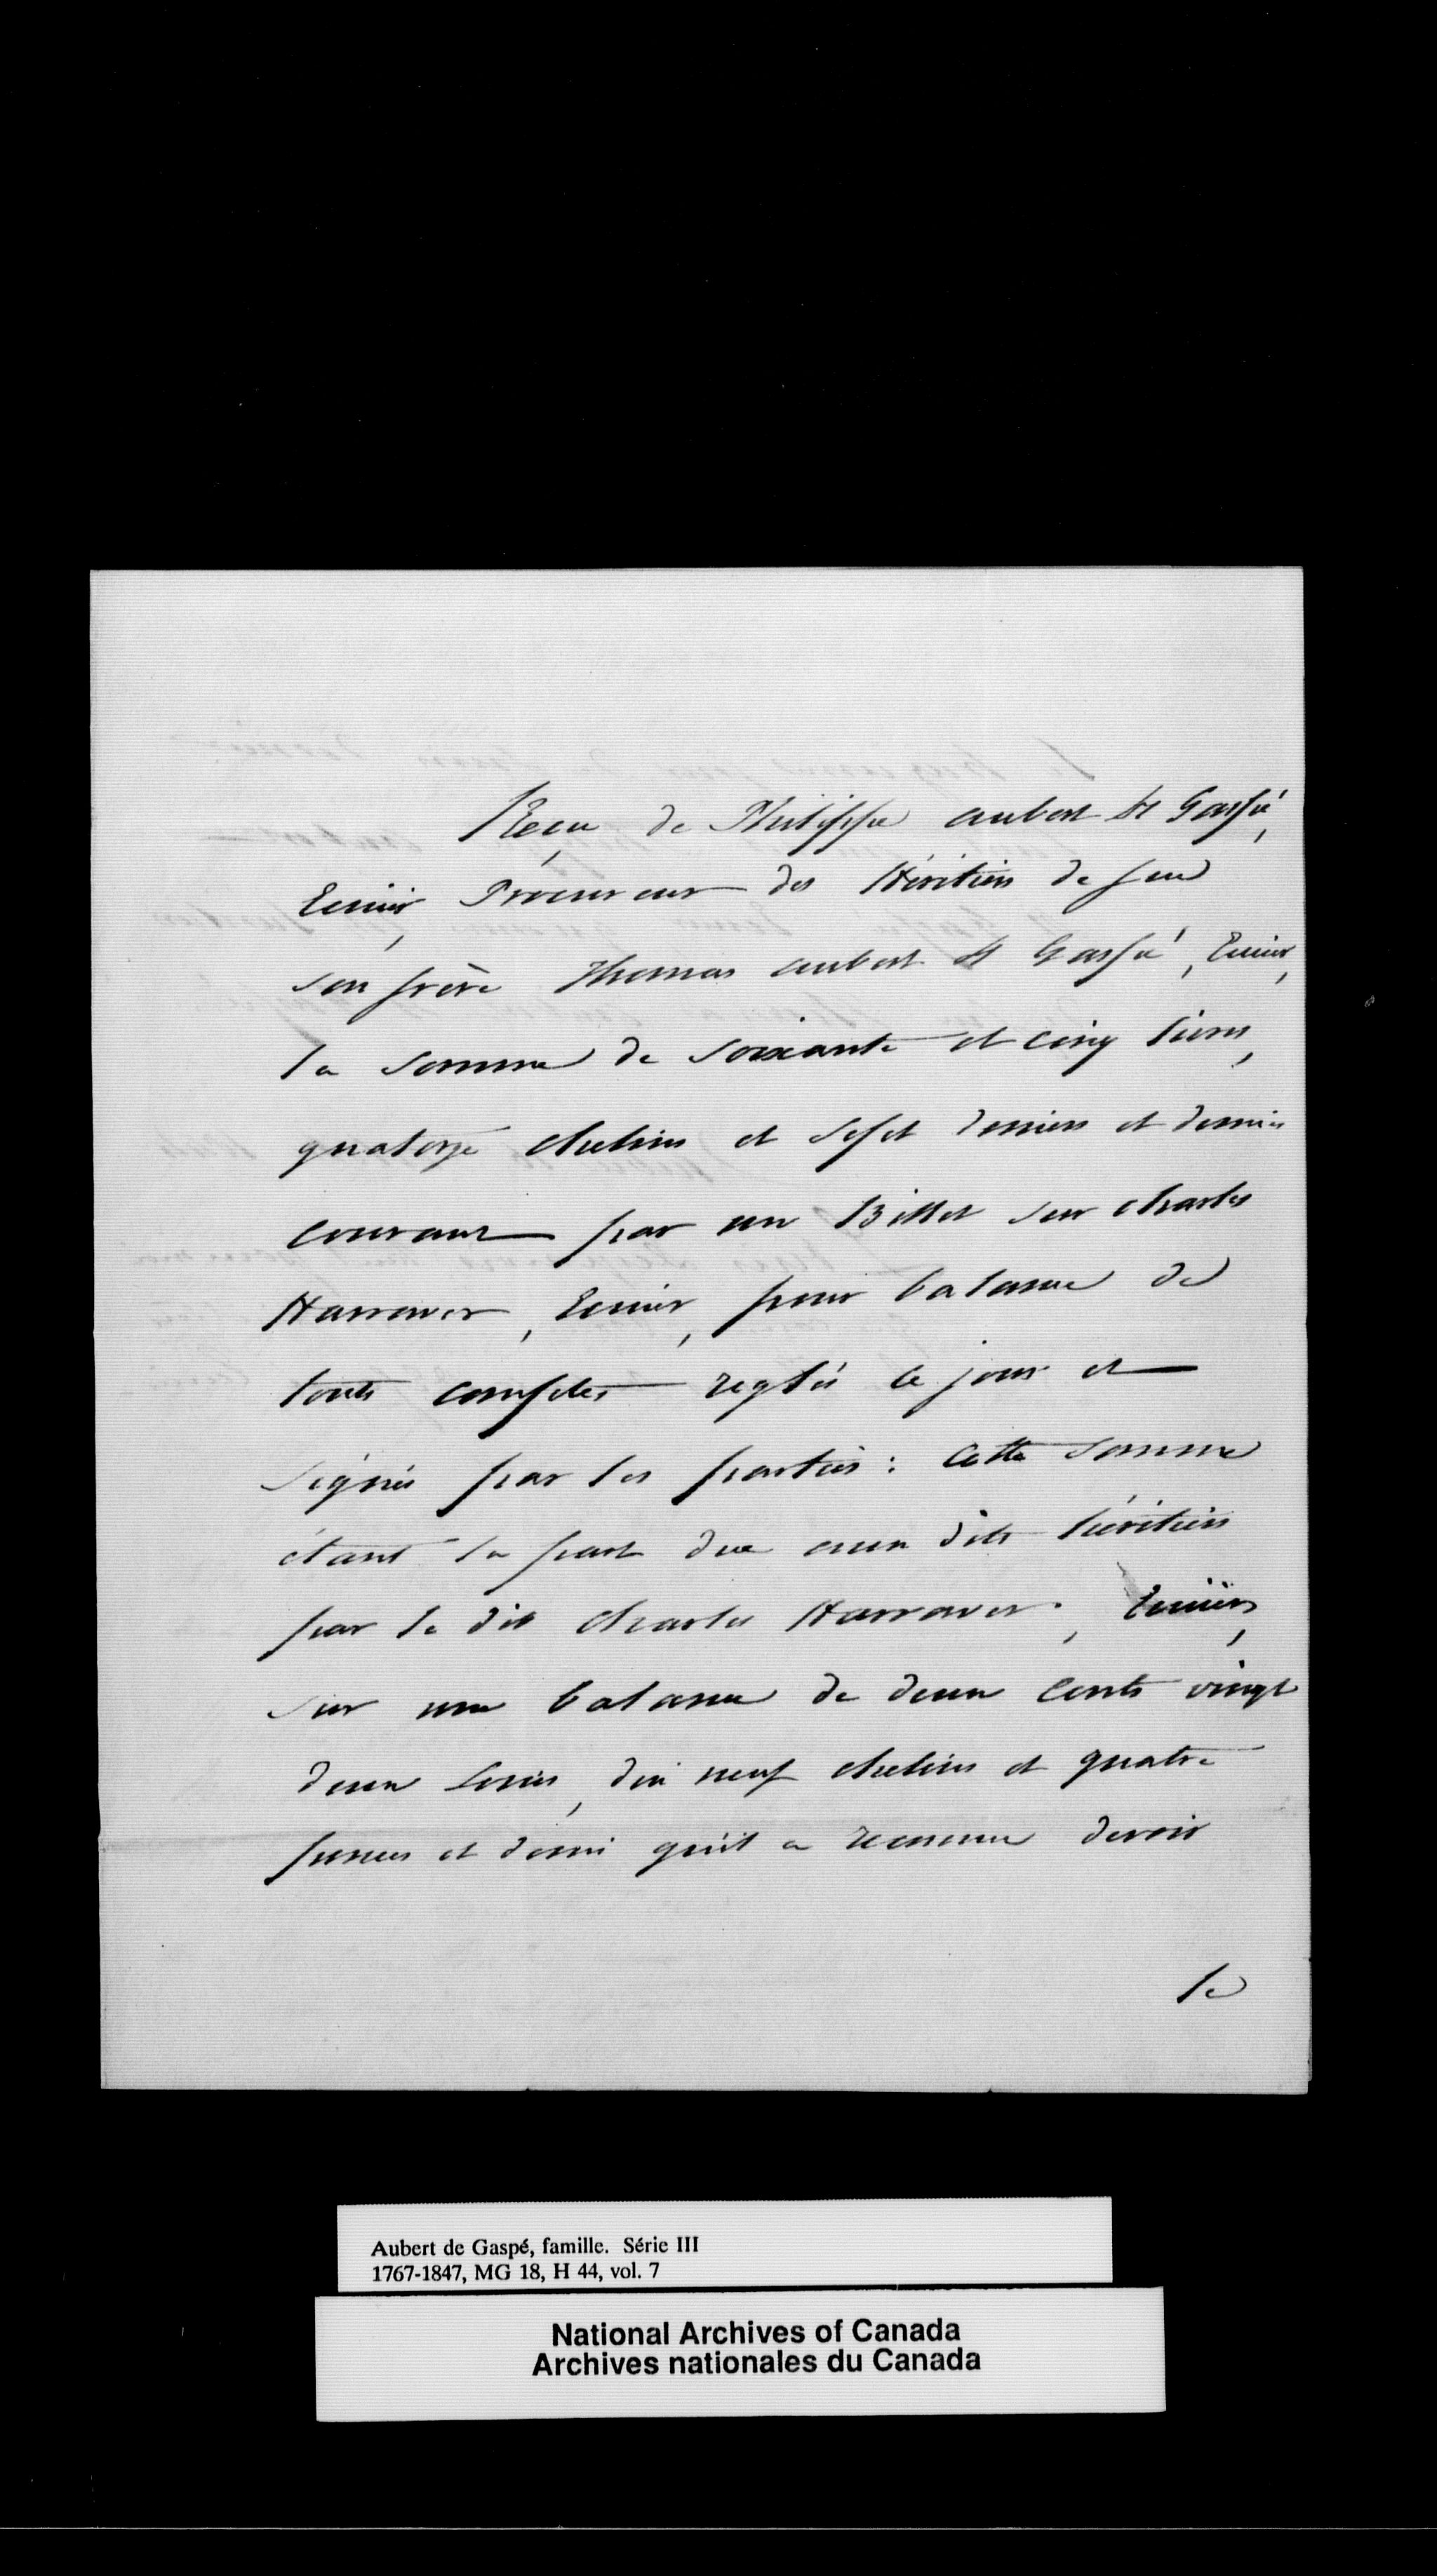 Reçu de Philippe aubert de Gaspé,
Ecuier, Procureur des Héritiers de feu
son frère Thomas aubert de Gaspé, Ecuier,
la somme de soixante et cinq livres,
quatorze chelins et sept deniers et demie
courant par un Billet sur charles
Harrower, Ecuier, pour balance de
touts comptes reglés ce jour et
signés par les parties: cette somme
étant la part due aux dits héritiers
par le dit charles Harrower, Ecuier,
sur une balance de deux cents vingt
deux Louis, dix neuf chelins et quatre
pences et demi qu'il a reconnu devoir
le
Aubert de Gaspé, famille. Série III
1767-1847, MG 18, H 44, vol. 7
National Archives of Canada
Archives nationales du Canada